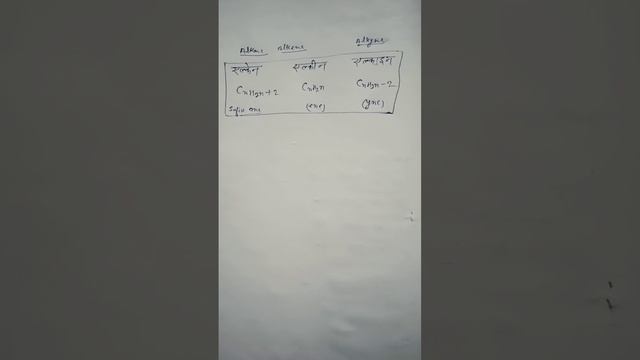 Alkane Alkene Alkyne
एल्केन एल्कीन एल्काइन
CnH2n+2 CnH2n CnH2n-2
Suffix ane (ene) (yne)